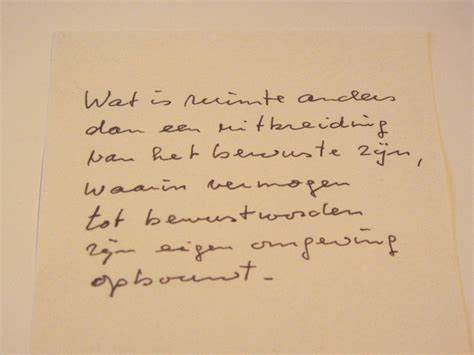 Wat is ruimte anders
dan een uitbreiding
van het bewuste zijn,
waarin vermogen
tot bewustworden
zijn eigen omgeving
opbouwt.